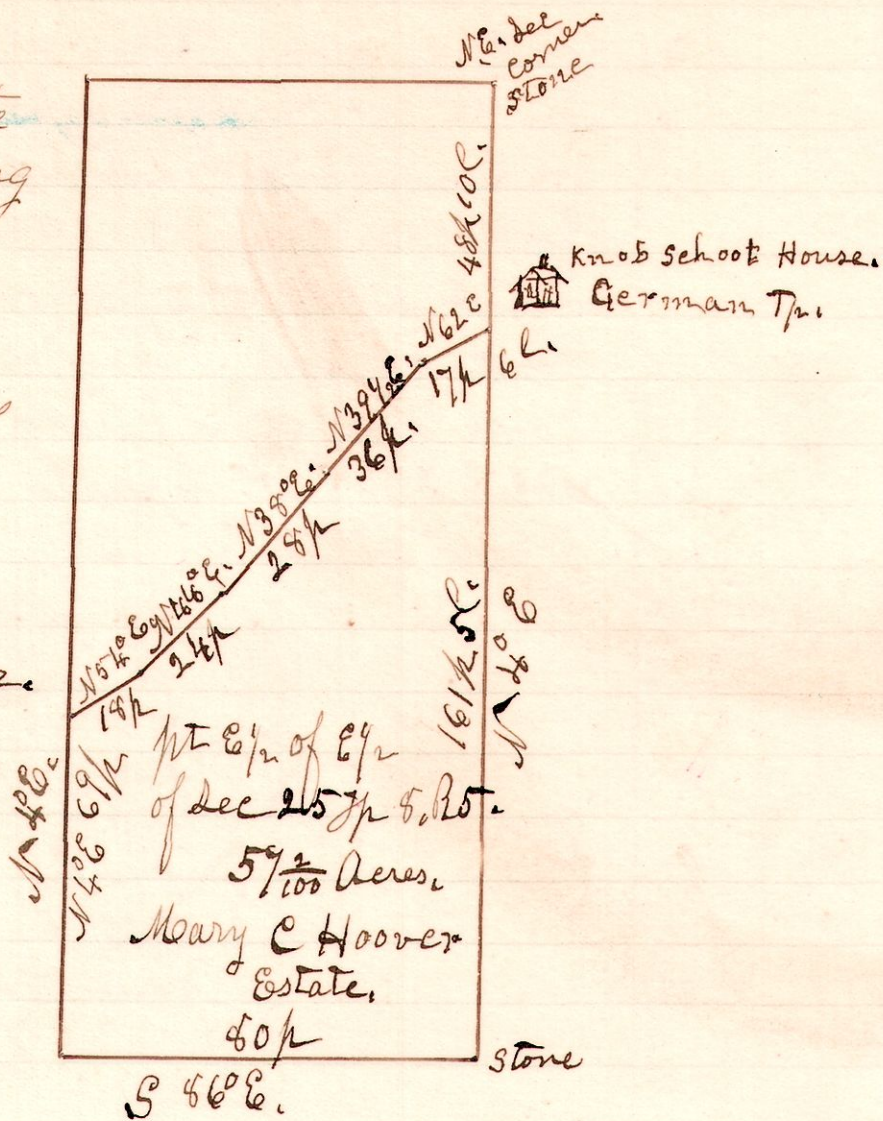 N.E. Sec
Corner
Stone
48p 10l.
Knob School House.
German Tp.
N 62 E
17p 6l.
N 39½ E.
36p.
N 38° E.
28p
N 46° E.
24p
N 54° E
18p
161p 5l.
N 4° E
N 4° E.
N 4° E 69p
pt E½ of E½
of Sec 25 Tp 8. R5.
57 2/100 Acres.
Mary C Hoover
Estate.
80p
Stone
S 86° E.
g